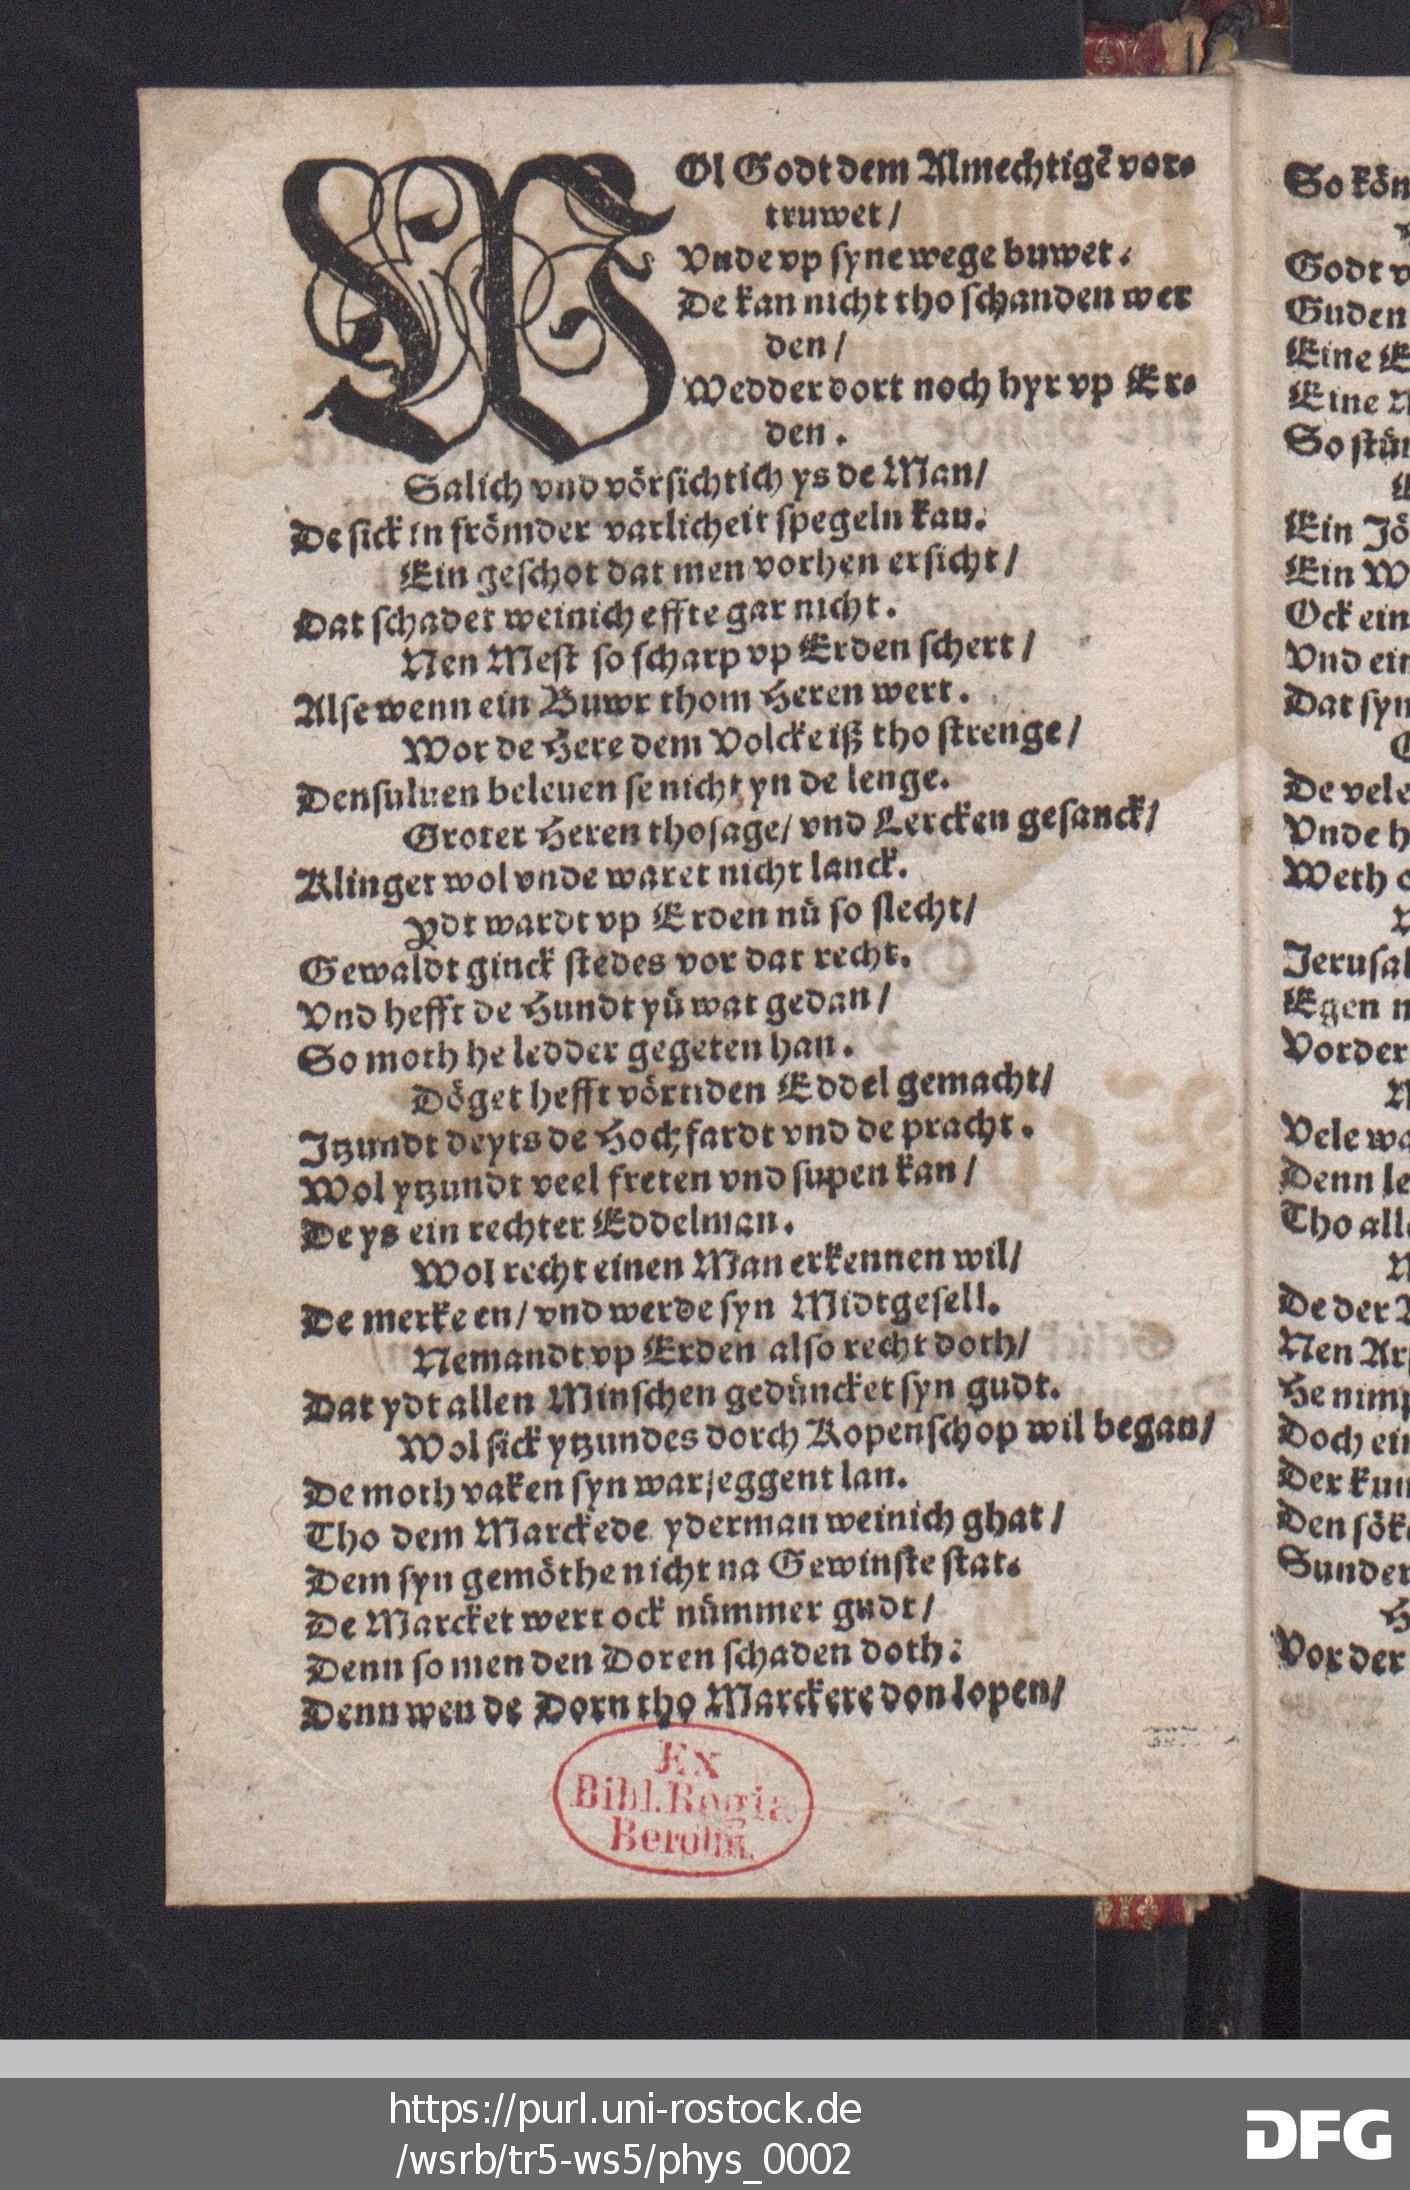 WOl Godt dem Almechtigē vor⸗
truwet /
Vnde vp syne wege buwet.
De kan nicht tho schanden wer
den /
Wedder dort noch hyr vp Er⸗
den.
Salich vnd vörsichtich ys de Man /
De sick in frömder varlicheit spegeln kan.
Ein geschot dat men vorhen ersicht /
Dat schadet weinich effte gar nicht.
Nen Mest so scharp vp Erden schert /
Alse wenn ein Buwr thom Heren wert.
Wor de Here dem Volcke iß tho strenge /
Densuluen beleuen se nicht yn de lenge.
Groter Heren thosage / vnd Lercken gesanck /
Klinget wol vnde waret nicht lanck.
Ydt wardt vp Erden nü so slecht /
Gewaldt ginck stedes vor dat recht.
Vnd hefft de Hundt yü wat gedan /
So moth he ledder gegeten han.
Döget hefft vörtiden Eddel gemacht /
Itzundt deyts de Hochfardt vnd de pracht.
Wol ytzundt veel freten vnd supen kan /
De ys ein rechter Eddelman.
Wol recht einen Man erkennen wil /
De merke en / vnd werde syn Midtgesell.
Nemandt vp Erden also recht doth /
Dat ydt allen Minschen gedüncket syn gudt.
Wol sick ytzundes dorch Kopenschop wil began /
De moth vaken syn warseggent lan.
Tho dem Marckede yderman weinich ghat /
Dem syn gemöthe nicht na Gewinste stat.
De Marcket wert ock nümmer gudt /
Denn so men den Doren schaden doth.
Denn wen de Dorn tho Marckere don lopen /
Ex
Bibl. Regia
Berolin.
So kön
Godt v
Guden
Eine E
Eine N
So stün
Ein Jö
Ein W
Ock ein
Vnd ein
Dat syn
De vele
Vnde h
Weth o
Jerusal
Egen n
Vorder
Vele wa
Denn le
Tho alle
De der
Nen Arg
He nimp
Doch ein
Der kun
Den söke
Sunder
Vor der
https://purl.uni-rostock.de
/wsrb/tr5-ws5/phys_0002
DFG